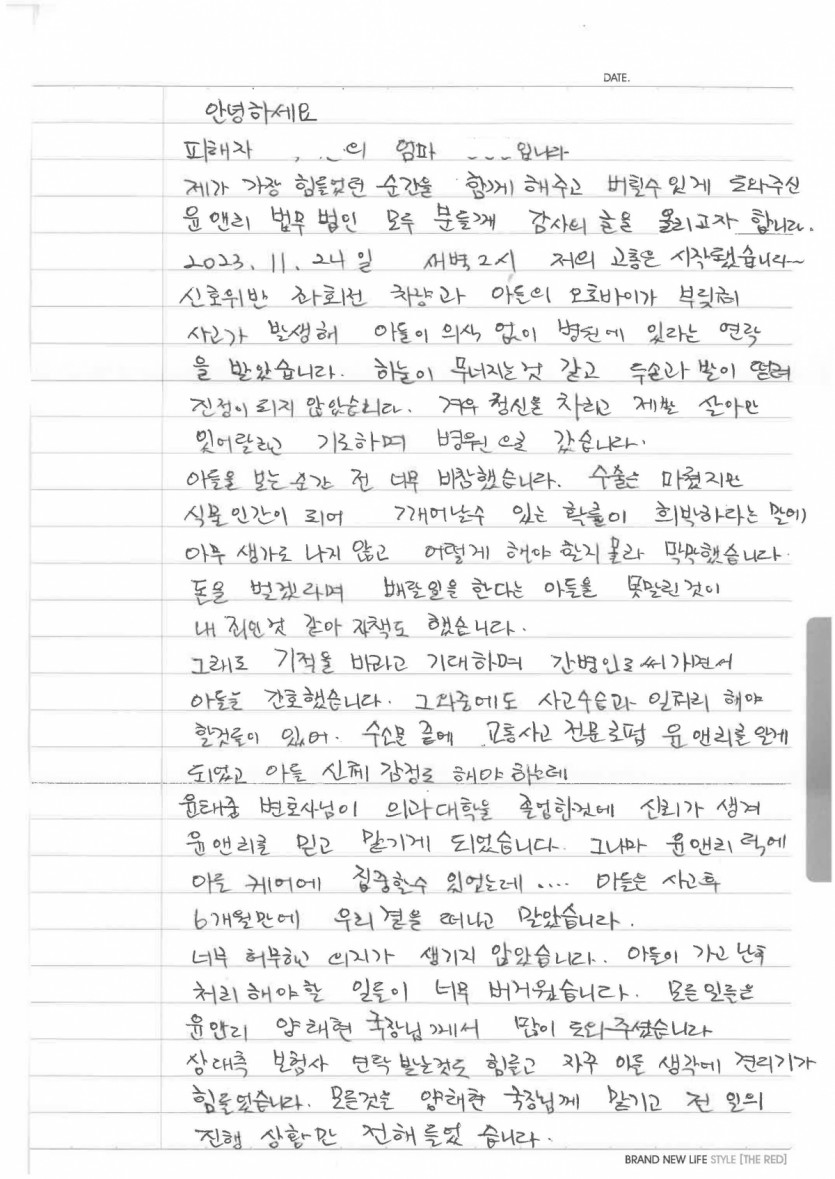 DATE.
안녕하세요
피해자 의 엄마 입니다
제가 가장 힘들었던 순간을 함께 해주고 버틸수 있게 도와주신
윤앤리 법무 법인 모두 분들께 감사의 글을 올리고자 합니다.
2023. 11. 24일 새벽 2시 저의 고통은 시작됐습니다~
신호위반 좌회전 차량과 아들의 오토바이가 부딪혀
사고가 발생해 아들이 의식 없이 병원에 있다는 연락
을 받았습니다. 하늘이 무너지는것 같고 두손과 발이 떨려
진정이 되지 않았습니다. 겨우 정신을 차리고 제발 살아만
있어달라고 기도하며 병원으로 갔습니다.
아들을 보는 순간 전 너무 비참했습니다. 수술은 마쳤지만
식물인간이 되어 깨어날수 있는 확률이 희박하다는 말에
아무 생각도 나지 않고 어떻게 해야 할지 몰라 막막했습니다.
돈을 벌겠다며 배달일을 한다는 아들을 못말린것이
내 죄인것 같아 자책도 했습니다.
그래도 기적을 바라고 기대하며 간병인도 써가면서
아들을 간호했습니다. 그와중에도 사고수습과 일처리 해야
할것들이 있어. 수소문 끝에 교통사고 전문로펌 윤앤리를 알게
되었고 아들 신체 감정도 해야 하는데
윤태중 변호사님이 의과대학을 졸업한것에 신뢰가 생겨
윤앤리를 믿고 맡기게 되었습니다. 그나마 윤앤리 덕에
아들 케어에 집중할수 있었는데 .... 아들은 사고후
6개월만에 우리 곁을 떠나고 말았습니다.
너무 허무하고 의지가 생기지 않았습니다. 아들이 가고 난후
처리해야할 일들이 너무 버거웠습니다. 모든일들은
윤앤리 양태현 국장님께서 많이 도와주셨습니다
상대측 보험사 연락 받는것도 힘들고 자꾸 아들 생각에 견디기가
힘들었습니다. 모든것은 양태현 국장님께 맡기고 전 일의
진행 상황만 전해 들었습니다.
BRAND NEW LIFE STYLE [THE RED]